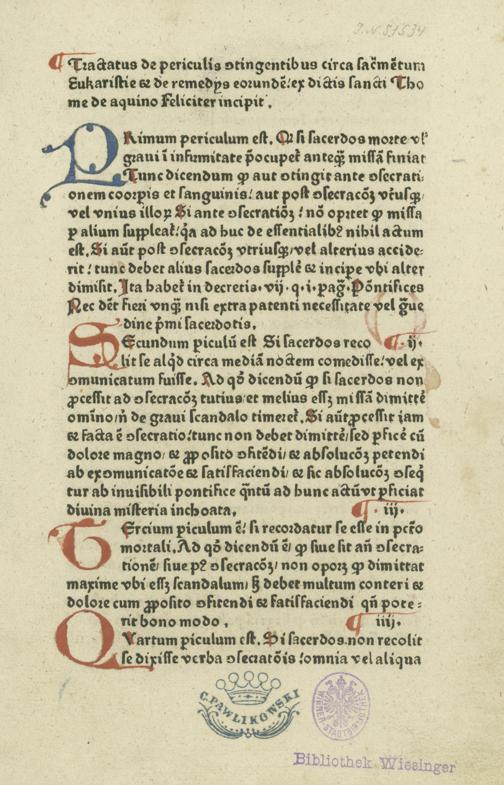 J.N.51534
¶Tractatus de periculis ↄtingentibus circa sac̄mētum
Eukaristie ⁊ de remedijs eorundē: ex dictis sancti Tho
me de aquino Feliciter incipit.
PRimum periculum est. Qꝛ si sacerdos morte vl᾽
graui ī infirmitate p̄ocupet̄ anteq̄ȝ missā finiat
Tunc dicendum ꝙ aut ↄtingit ante ↄsecrati-
onem coorpis et sanguinis: aut post ↄsecracōȝ vt̓usqȝ,
vel vnius illoꝝ Si ante ↄsecratiōȝ: nō oꝑtet ꝙ missa
ꝑ alium suppleat̄: q̄a ad huc de essentialibꝰ nihil actum
est. Si aūt post ↄsecracōȝ vtriusqȝ, vel alterius accide-
rit: tunc debet alius sacerdos supplē ⁊ incipe vbi alter
dimisit. Ita habet̄ in decretis. vij. q. i. pag̓. Pōntifices
Nec dēt fieri vnq̄ȝ nisi extra patenti necessitate vel ḡue
dine p̄mi sacerdotis.
SEcundum piculū est Si sacerdos reco ¶.ij.
lit se alqd̓ circa mediā noctem comedisse: vel ex
ↄmunicatum fuisse. Ad qd̓ dicendū ꝙ si sacerdos non
ꝓcessit ad ↄsecracōȝ tutius et melius essȝ missā dimittē
omīno, n̓ de graui scandalo timeret̄. Si aūt ꝓcessit iam
⁊ facta ē ↄsecratio: tunc non debet dimittē, sed ꝑficē cū
dolore magno, ⁊ ꝓposito ↄfitēdi, ⁊ absolucōȝ petendi
ab exↄmunicatōe ⁊ satisfaciendi, ⁊ sic absolucōȝ ↄseq̄
tur ab inuisibili pontifice q̄ntū ad hunc actū vt ꝑficiat
diuina misteria inchoata. ¶.iij.
TErcium piculum ē: si recordatur se esse in pctō
mortali. Ad qd̓ dicendū ē, ꝙ siue sit an̄ ↄsecra-
tionē, siue pꝰ ↄsecracōȝ, non oporȝ ꝙ dimittat
maxime vbi essȝ scandalum, sȝ debet multum conteri ⁊
dolore cum ꝓposito ↄfitendi ⁊ satisfaciendi qn̄ pote-
rit bono modo. ¶ iiij.
QVartum piculum est. Si sacerdos non recolit
se dixisse verba ↄsecratōis: omnia vel aliqua
C. PAWLIKOWSKI
WIENER STADTBIBLIOTHEK
Bibliothek Wiesinger